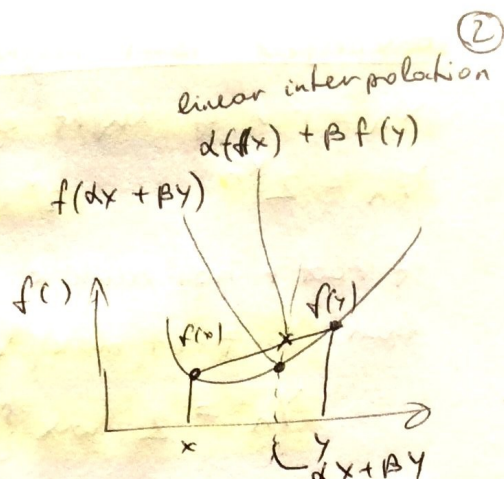 2
linear interpolation
αf(x) + βf(y)
f(αx + βy)
f( )
f(x)
f(y)
x
y
αx + βy